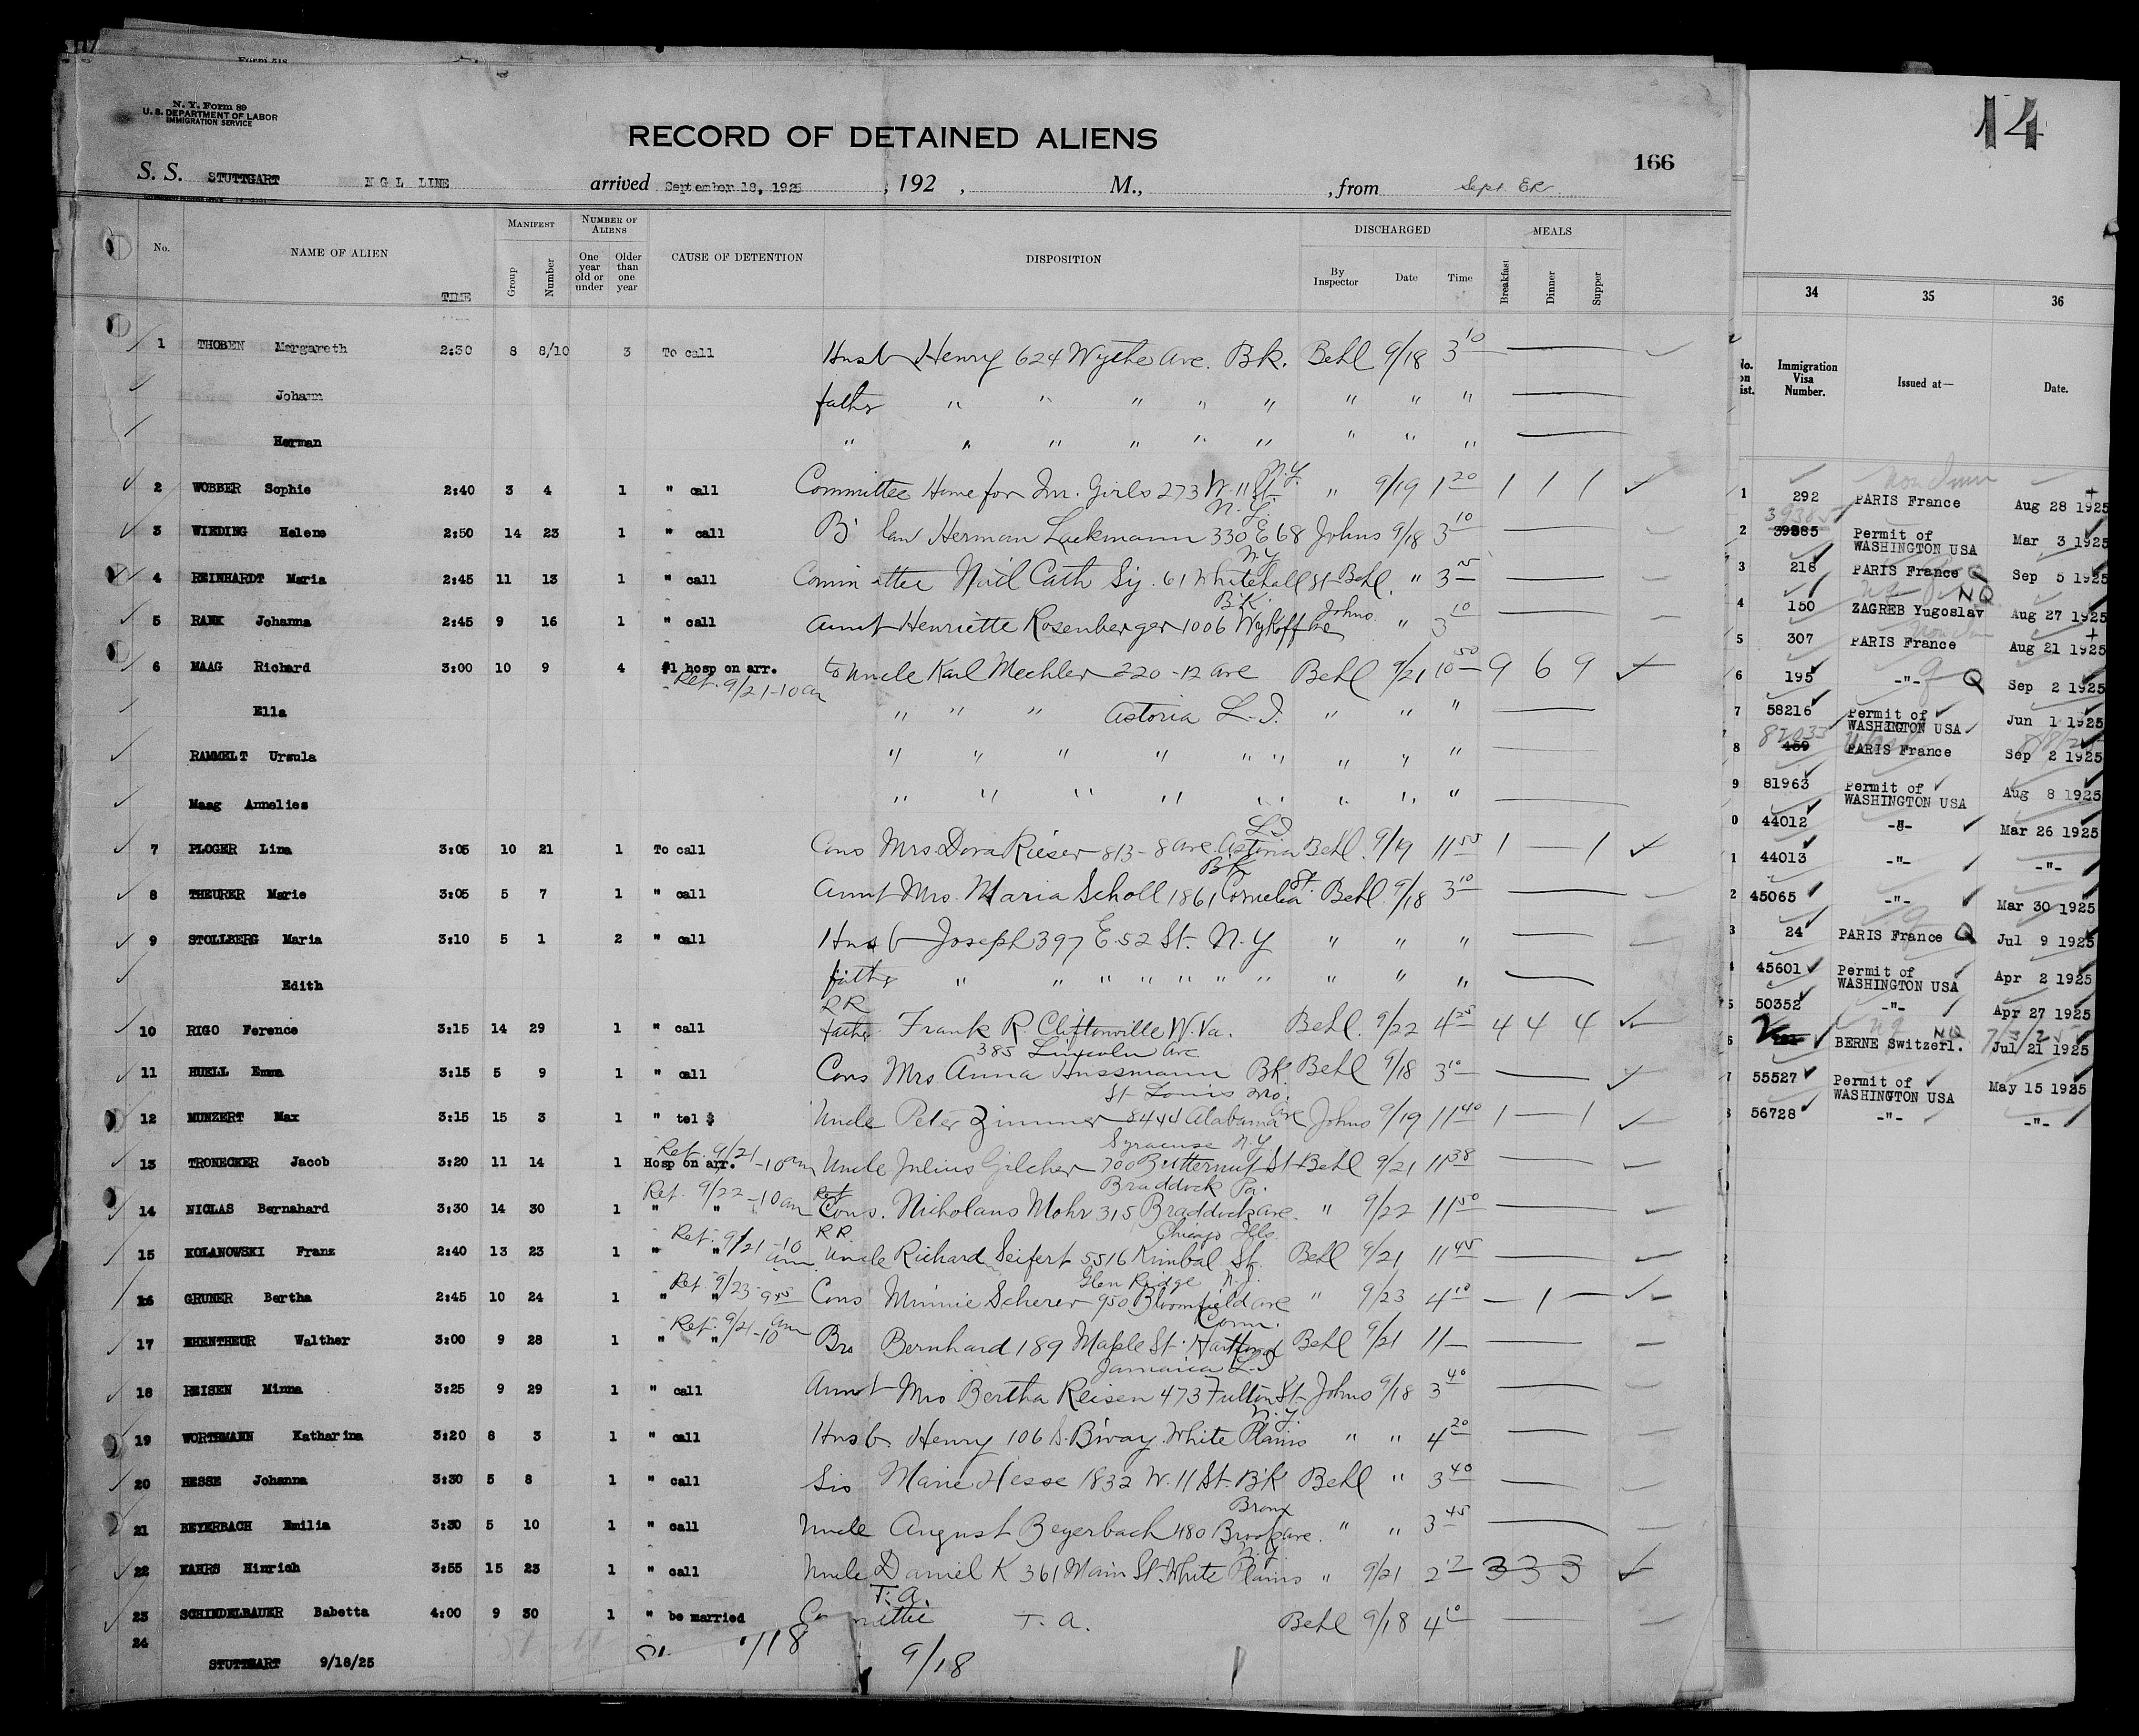 N. Y. Form 89
U. S. DEPARTMENT OF LABOR
IMMIGRATION SERVICE
RECORD OF DETAINED ALIENS
166
S. S. STUTTGART N G L LINE arrived September 18, 1925, 192 , M., , from Sept. ER
No. NAME OF ALIEN TIME MANIFEST Group Number NUMBER OF ALIENS One year old or under Older than one year CAUSE OF DETENTION DISPOSITION DISCHARGED By Inspector Date Time MEALS Breakfast Dinner Supper
1 THOBEN Margareth 2:30 8 8/10 3 To call Husb Henry 624 Wythe Ave. Bk. Behl 9/18 3 10
Johann father " " " " " " " "
Herman " " " " " " " " "
2 WOBBER Sophie 2:40 3 4 1 " call Committee Home for Im. Girls 273 W. 11 St. N.Y. " 9/19 1 20 1 1 1
3 WIEDING Helene 2:50 14 23 1 " call B' law Herman Lackmann 330 E 68 N.Y. Johns 9/18 3 10
4 REINHARDT Maria 2:45 11 13 1 " call Committee Natl Cath 61 Whitehall St N.Y. Behl. " 3
5 RANK Johanna 2:45 9 16 1 " call Aunt Henriette Rosenberger 1006 Wykoff Ave B'K. Johns " 3 10
6 MAAG Richard 3:00 10 9 4 #1 hosp on arr. Ret. 9/21-10 am to Uncle Karl Mechler 220-12 ave Behl 9/21 10 50 9 6 9
Ella " " " Astoria L.I. " " "
RAMMELT Ursula " " " " " " " " "
Maag Annelies " " " " " " " " "
7 PLOGER Lina 3:05 10 21 1 To call Cons Mrs. Dora Rieser 813-8 ave. Astoria L.I. Behl. 9/19 11 55 1 — 1
8 THEURER Marie 3:05 5 7 1 " call Aunt Mrs. Maria Scholl 1861 Cornelia St. Bk Behl. 9/18 3 10
9 STOLLBERG Maria 3:10 5 1 2 " call Husb Joseph 397 E. 52 St. N.Y " " "
Edith father " " " " " " " " " "
10 RIGO Ference 3:15 14 29 1 " call RR father Frank R. Cliftonville W. Va. Behl. 9/22 4 25 4 4 4
11 HUELL Emma 3:15 5 9 1 " call Cons Mrs. Anna Hussmann 385 Lincoln Ave Bk. Behl 9/18 3 10
12 MUNZERT Max 3:15 15 3 1 " tel $ Uncle Peter Zimmer 8444 Alabama Ave St Louis Mo. Johns 9/19 11 40 1 — 1
13 TRONECKER Jacob 3:20 11 14 1 Hosp on arr. Ret. 9/21-10 am Uncle Julius Gilcher 700 Butternut St Syracuse N.Y. Behl 9/21 11 38
14 NICLAS Bernahard 3:30 14 30 1 " " Ret. 9/22-10 am Cons. Nicholaus Mohr 315 Braddock ave. Braddock Pa. " 9/22 11 50
15 KOLANOWSKI Franz 2:40 13 23 1 " " Ret. 9/21-10 am RR Uncle Richard Seifert 5516 Kimbal St. Chicago Ills. Behl 9/21 11 45
16 GRUNER Bertha 2:45 10 24 1 " " Ret. 9/23-9 45 am Cons Minnie Scherer 950 Bloomfield ave Glen Ridge N.J. " 9/23 4 10 — 1 —
17 EHENTHEUR Walther 3:00 9 28 1 " " Ret. 9/21-10 Bro Bernhard 189 Maple St. Hartford Conn. Behl 9/21 11
18 REISEN Minna 3:25 9 29 1 " call Aunt Mrs Bertha Reisen 473 Fulton St. Jamaica L.I Johns 9/18 3 40
19 WORTHMANN Katharina 3:20 8 3 1 " call Husb. Henry 106 S. B'way. White Plains N.Y. " " 4 20
20 HESSE Johanna 3:30 5 8 1 " call Sis Marie Hesse 1832 W. 11 St. B'K Behl " 3 40
21 BEYERBACH Emilia 3:30 5 10 1 " call Uncle August Beyerbach 480 Brook ave. Bronx " " 3 45
22 KAHRS Hinrich 3:55 15 23 1 " call Uncle Daniel K 361 Main St. White Plains N.Y " 9/21 2 17 3 3 3
23 SCHINDELBAUER Babetta 4:00 9 30 1 " be married Committee T. A. T. A. Behl 9/18 4 10
24
STUTTGART 9/18/25 9/18
14
34 35 36
No. on List. Immigration Visa Number. Issued at— Date.
1 292 PARIS France Aug 28 1925
2 39385 39385 Permit of WASHINGTON USA Mar 3 1925
3 218 PARIS France Q Sep 5 1925
4 150 ZAGREB Yugoslav NQ Aug 27 1925
5 307 PARIS France Aug 21 1925
6 195 -"- Q Sep 2 1925
7 58216 Permit of WASHINGTON USA Jun 1 1925
8 82033 459 PARIS France Sep 2 1925
9 81963 Permit of WASHINGTON USA Aug 8 1925
0 44012 -"- Mar 26 1925
1 44013 -"- -"-
2 45065 -"- Mar 30 1925
3 24 PARIS France Q Jul 9 1925
4 45601 Permit of WASHINGTON USA Apr 2 1925
5 50352 -"- Apr 27 1925
6 BERNE Switzerl. NQ 7/3/25 Jul 21 1925
7 55527 Permit of WASHINGTON USA May 15 1925
8 56728 -"- -"-